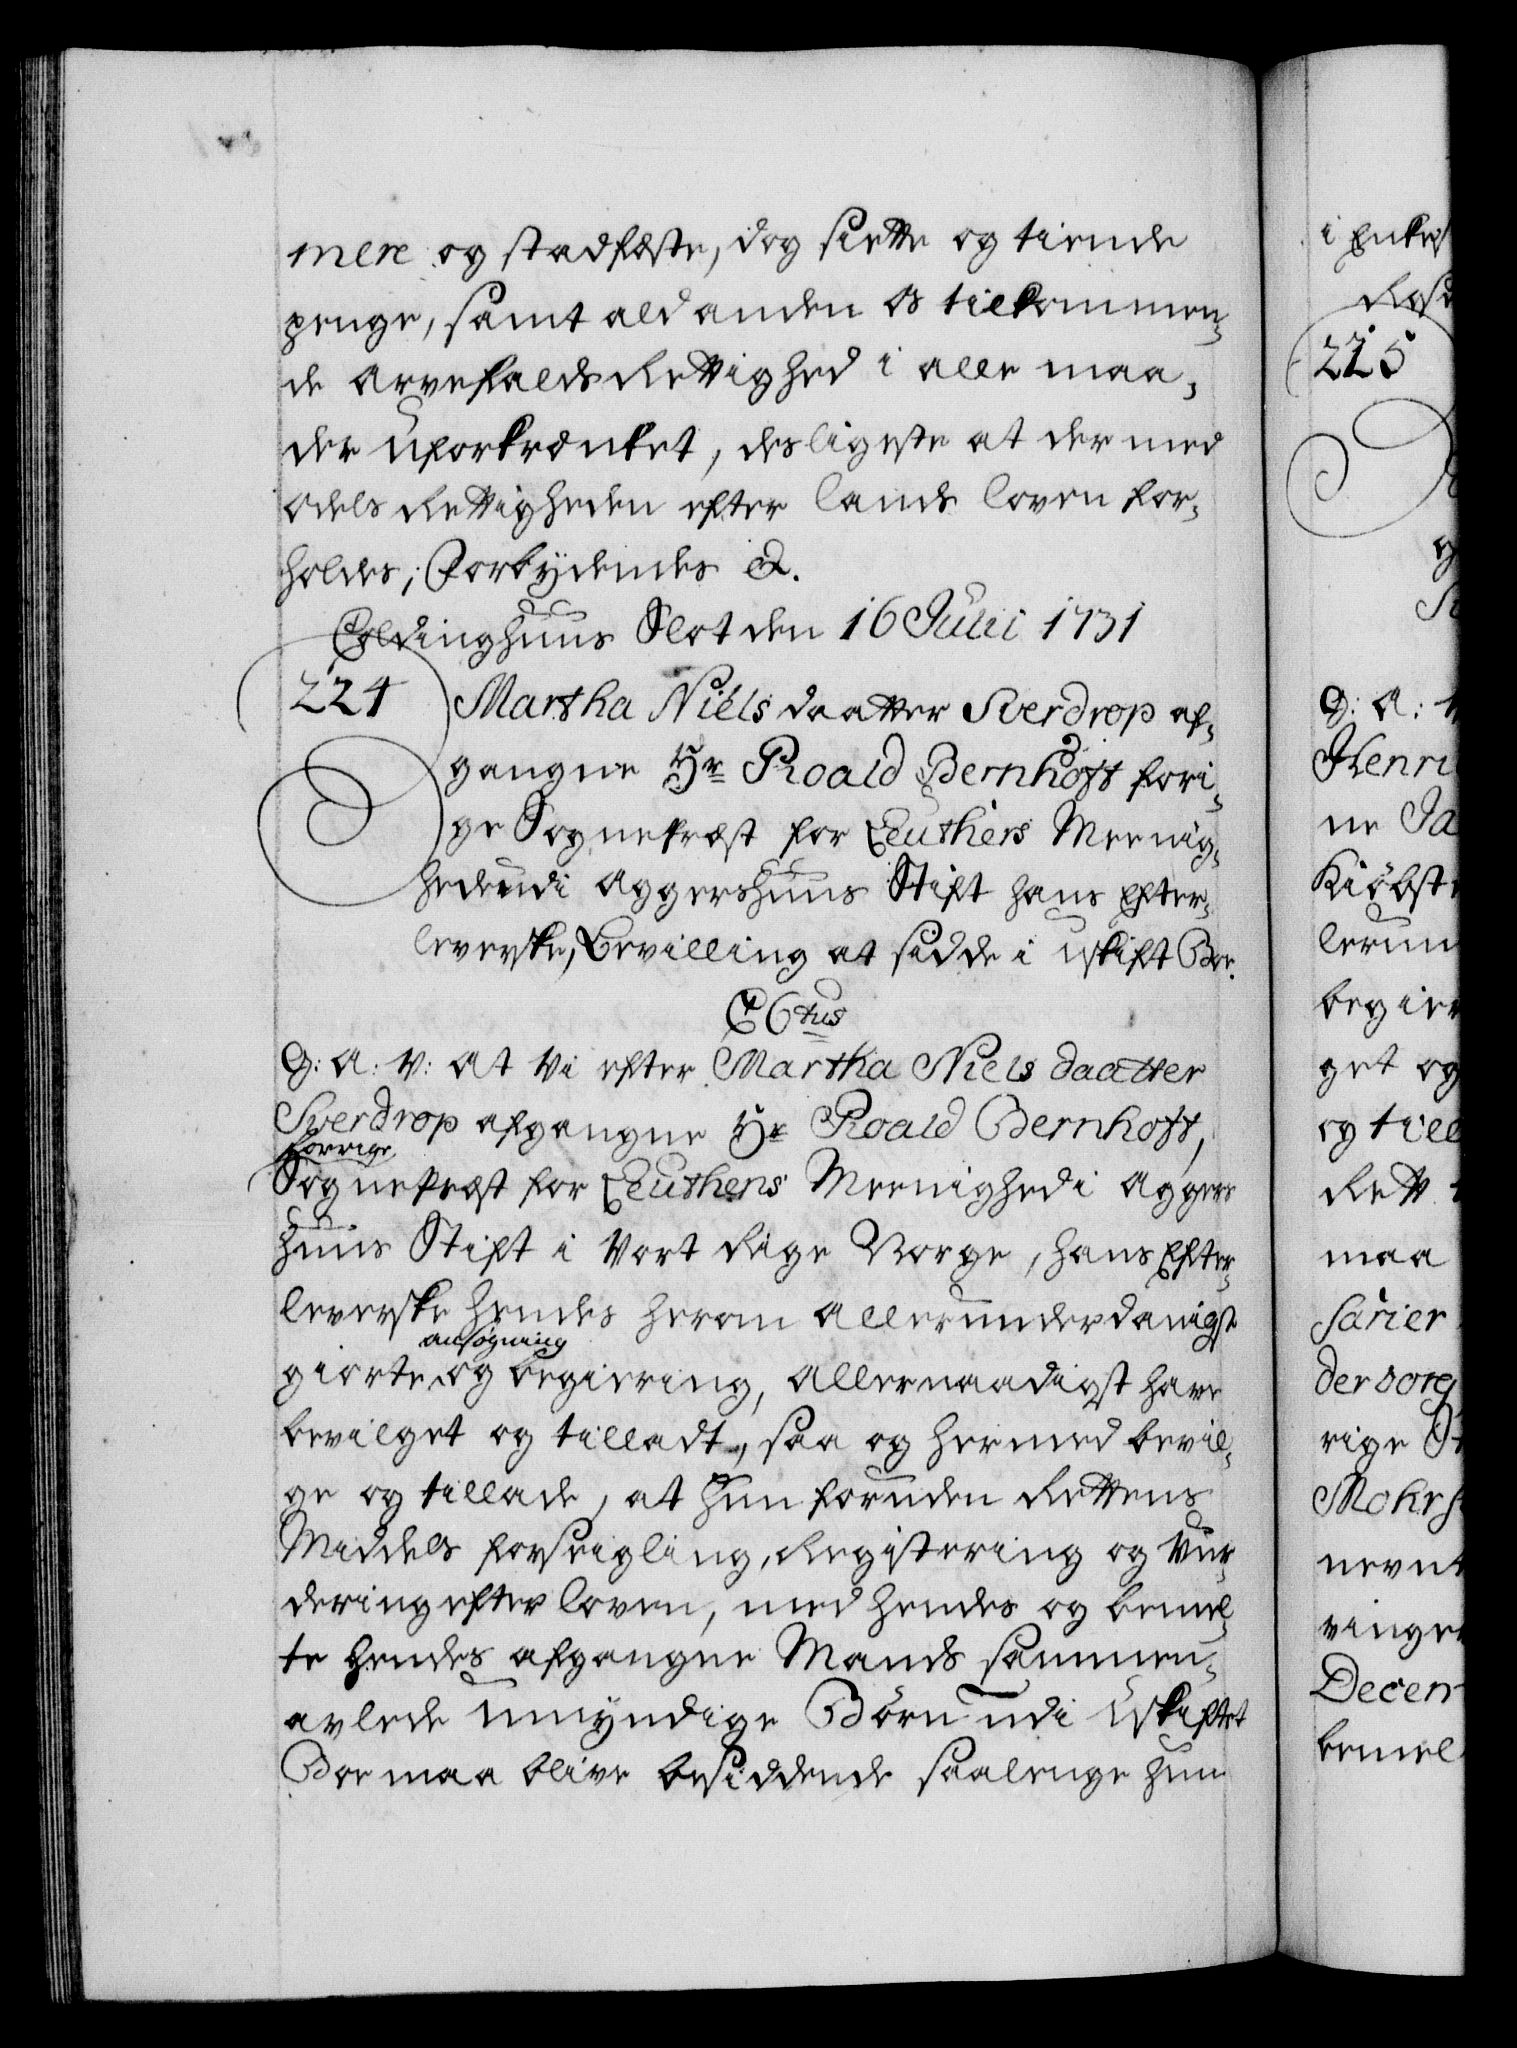 mere og stadfæste, dog siette og tiende
penge, samt ald anden Os tilkommen¬
de Arvefalds Rettighed i alle maa¬
der uforkrænket, desligeste at der med
Odels Rettigheden efter Lands Loven for¬
holdes; Forbydendes &.
Coldinghuus Slot den 16 Julii 1731
224
Martha Niels daatter Sverdrop af¬
gangne Hr Roald Bernhoft fori¬
ge Sognepræst for Leuthens Meenig¬
hed udi Aggershuus Stift hans Efter¬
leverske, Bevilling at sidde i uskift Boe.
C 6tus
G: A: V: At Vi efter Martha Niels daatter
Sverdrop afgangne Hr Roald Bernhoft,
forrige
Sognepræst for Leuthens Meenighed i Aggers
huus Stift i Vort Rige Norge, hans Efter¬
leverske hendes herom allerunderdanigst
ansøgning
giorte og begiering, allernaadigst have
bevilget og tilladt, saa og hermed bevil¬
ge og tillade, at hun foruden Rettens
Middels forseigling, Registering og Vur¬
dering efter Loven, med hendes og bemel¬
te hendes afgangne Mands sammen¬
avlede umyndige Børn udi uskiftet
Boe maa blive besiddende saalenge hun
i Enke
225
G: A:
Henri
ne Ja
Kiöbst
lerun
begier
get og
og till
Rett
maa
sarier
dersorg
rige
Mohrs
nevnt
vinge
Decem
bemel